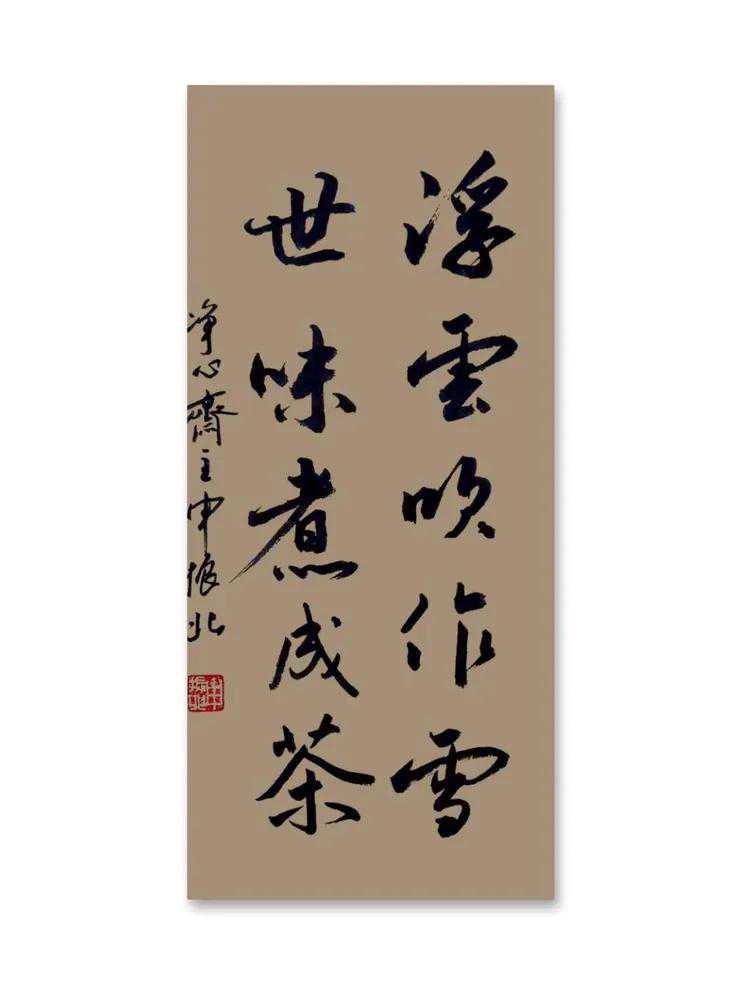 浮雲吹作雪
世味煮成茶
净心齋主申振北